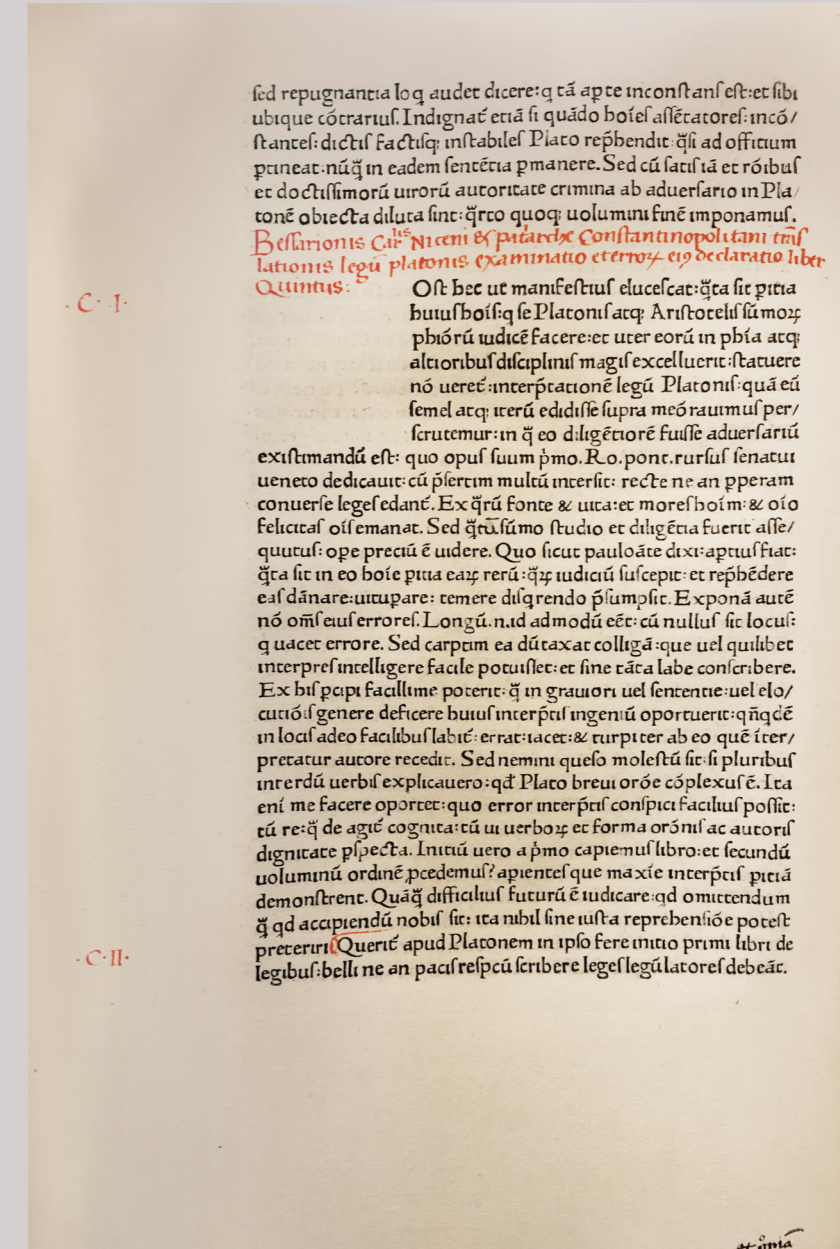 sed repugnantia loq̃ audet dicere:q tã apte inconstans est:et sibi
ubique cõtrarius. Indignat᷑ etiã si quãdo hoĩes assẽtatores: incõ/
stantes: dictis factisq; instabiles Plato rep̃hendit: q̃si ad officium
ꝑtineat.nũq̃ in eadem sentẽtia ꝑmanere. Sed cũ satis iã et rõibus
et doctissimorũ uirorũ autoritate crimina ab aduersario in Pla/
tonẽ obiecta diluta sint: q̃rto quoq; uolumini finẽ imponamus.
Bessarionis Carˡⁱˢ Niceni & patarche Constantinopolitani trãs
lationis legũ platonis examinatio et erroꝝ eiꝰ declaratio liber
Quintus:
.C.I.
Ost hec ut manifestius elucescat: q̃ta sit ꝑitia
huius hoĩs:q se Platonis atq; Aristotelis sũmoꝝ
phiõrũ iudicẽ facere:et uter eorũ in phĩa atq;
altioribus disciplinis magis excelluerit: statuere
nõ ueret᷑:interp̃tationẽ legũ Platonis: quã eũ
semel atq; iterũ edidisse supra meõrauimus per/
scrutemur: in q̃ eo diligẽtiorẽ fuisse aduersariũ
existimandũ est: quo opus suum p̃mo. Ro. pont. rursus senatui
ueneto dedicauit: cũ p̃sertim multũ intersit: recte ne an ꝓperam
conuerse leges edant᷑. Ex q̃rũ fonte & uita:et mores hoĩm: & oĩo
felicitas oĩs emanat. Sed q̃tũ sũmo studio et diligẽtia fuerit asse/
quutus: ope preciũ ẽ uidere. Quo sicut pauloãte dixi: aptius fiat:
q̃ta sit in eo hoĩe ꝑitia eaꝝ rerũ: q̃ꝝ iudiciũ suscepit: et rep̃hẽdere
eas dãnare: uituꝑare: temere disq̃rendo p̃sumpsit. Exponã autẽ
nõ om̃s eius errores. Longũ.n.id admodũ eẽt: cũ nullus sit locus:
q uacet errore. Sed carptim ea dũtaxat colligã: que uel quilibet
interpres intelligere facile potuisset: et sine tãta labe conscribere.
Ex his ꝑcipi facillime poterit: q̃ in grauiori uel sententie: uel elo/
cutiõis genere deficere huius interp̃tis ingeniũ oportuerit: qñqdẽ
in locis adeo facilibus labit᷑: errat: iacet: & turpiter ab eo quẽ ĩter/
pretatur autore recedit. Sed nemini queso molestũ sit: si pluribus
interdũ uerbis explicauero: qđ Plato breui orõe cõplexus ẽ. Ita
enĩ me facere oportet: quo error interp̃tis conspici facilius possit:
tũ re: q̃ de agit᷑ cognita: tũ ui uerboꝝ et forma orõnis ac autoris
dignitate ꝑspecta. Initiũ uero a p̃mo capiemus libro: et secundũ
uoluminũ ordinẽ ꝓcedemus? apientes que maxĩe interp̃tis ꝑitiã
demonstrent. Quãq̃ difficilius futurũ ẽ iudicare: qd omittendum
q̃ qd accipiendũ nobis sit: ita nihil sine iusta reprehensiõe potest
preteriri Querit᷑ apud Platonem in ipso fere initio primi libri de
.C.II.
legibus: belli ne an pacis respcũ scribere leges legũlatores debeãt.